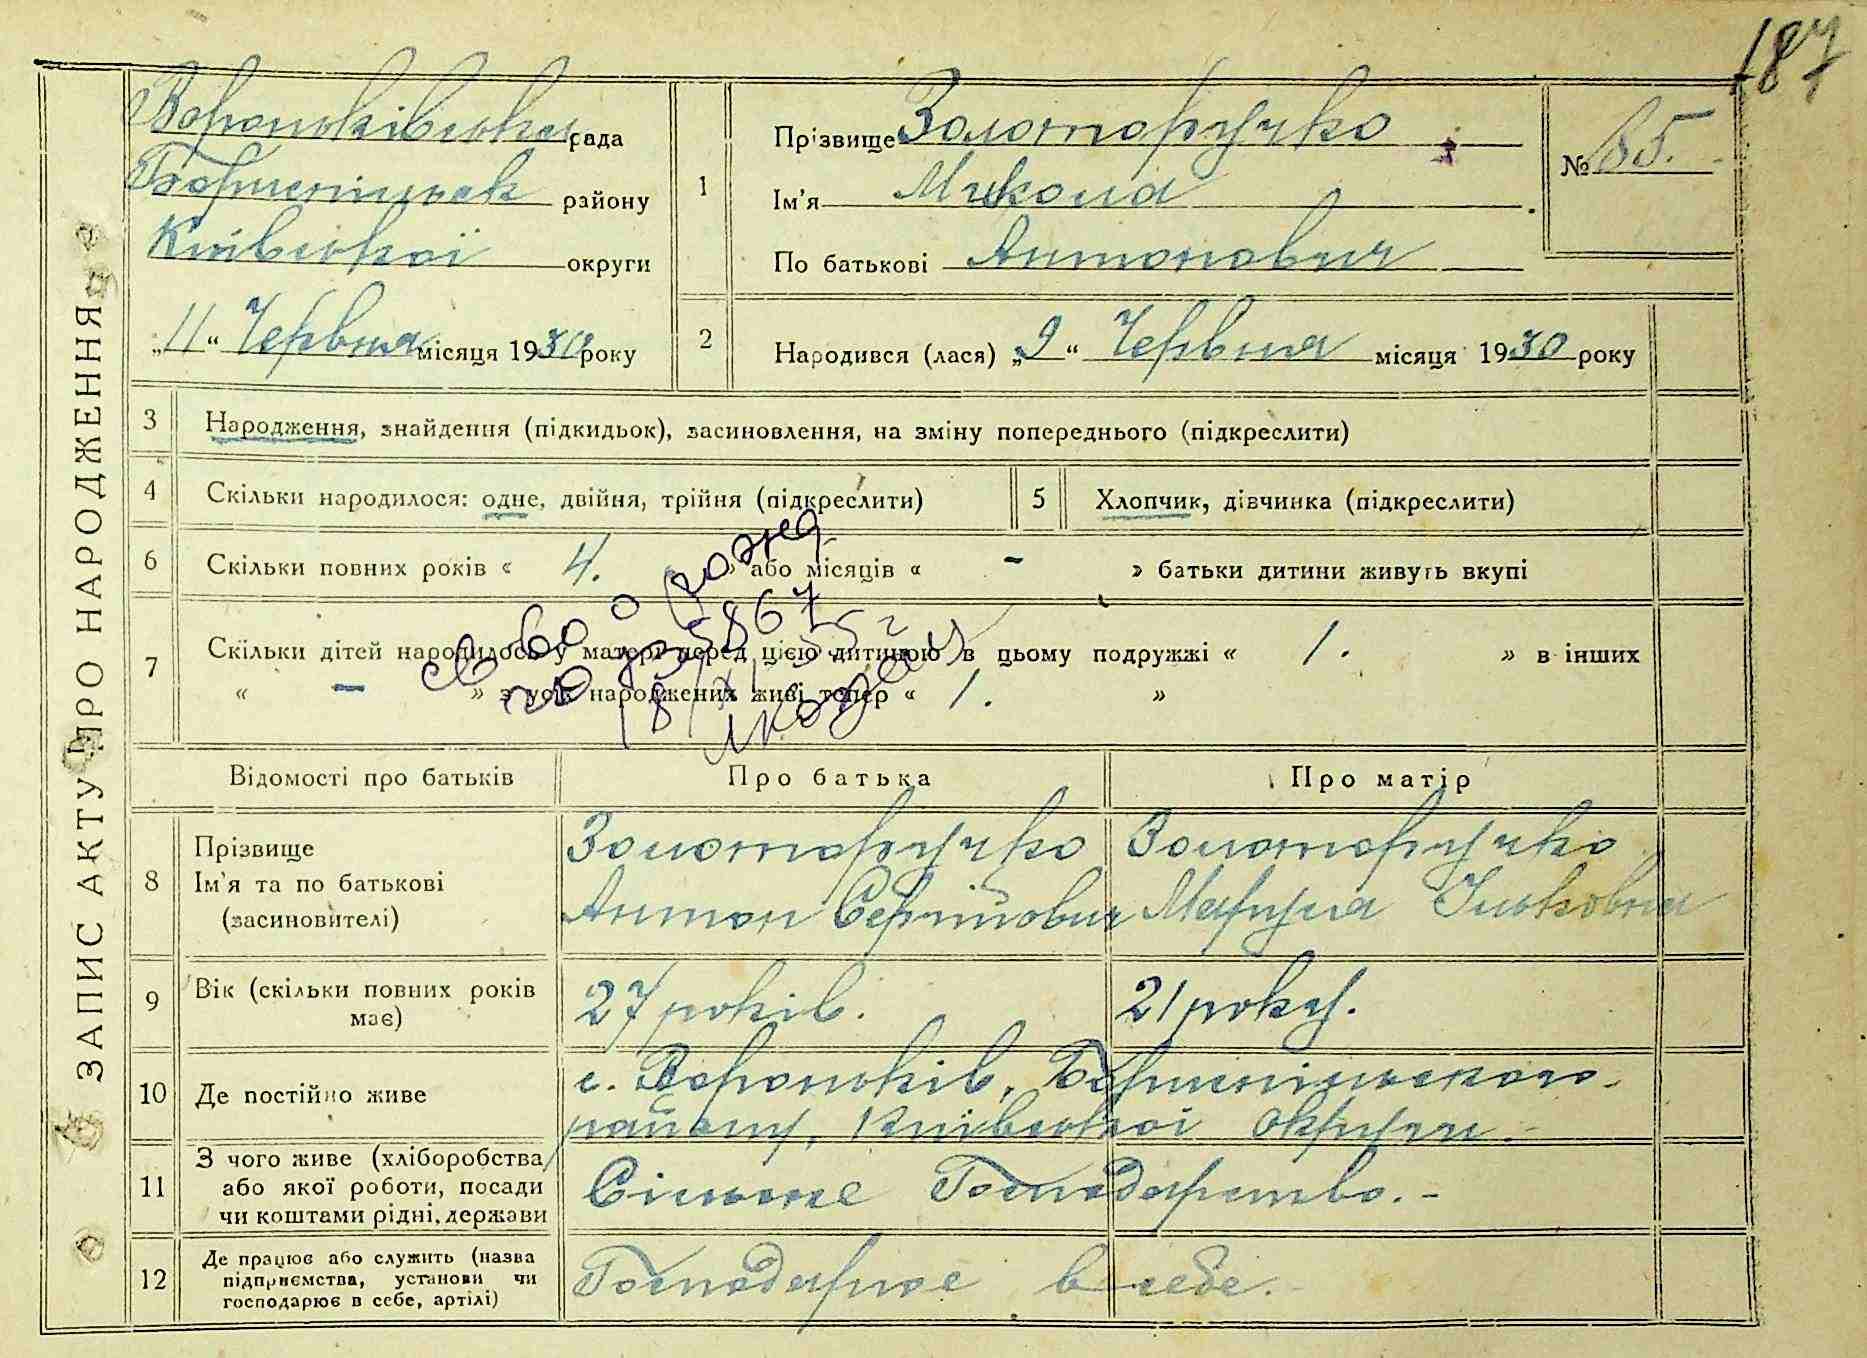 187
ЗАПИС АКТУ ПРО НАРОДЖЕННЯ
Вороньківська рада
Бориспільськ району
Київської округи
„11“ Червня місяця 1930 року
1
Прізвище Золоторучко
Ім'я Микола
По батькові Антонович
№ 85.
2
Народився (лася) „9“ Червня місяця 1930 року
3 Народження, знайдення (підкидьок), засиновлення, на зміну попереднього (підкреслити)
4 Скільки народилося: одне, двійня, трійня (підкреслити) 5 Хлопчик, дівчинка (підкреслити)
6 Скільки повних років « 4. » або місяців « - » батьки дитини живуть вкупі
7 Скільки дітей народилось у матері перед цією дитиною в цьому подружжі « 1. » в інших
« – » з усіх народжених живі тепер « 1. »
св во о рожд
Відомості про батьків Про батька Про матір
8 Прізвище
Ім'я та по батькові
(засиновителі)
Золоторучко Золоторучко
Антон Сергійович Маруся Ільковна
9 Вік (скільки повних років має) 27 років. 21 року.
10 Де постійно живе с. Вороньків, Бориспільського
району, Київської округи.-
11 З чого живе (хліборобства
або якої роботи, посади
чи коштами рідні, держави
Сільське Господарство.-
12 Де працює або служить (назва
підприємства, установи чи
господарює в себе, артілі)
Господарює в себе.